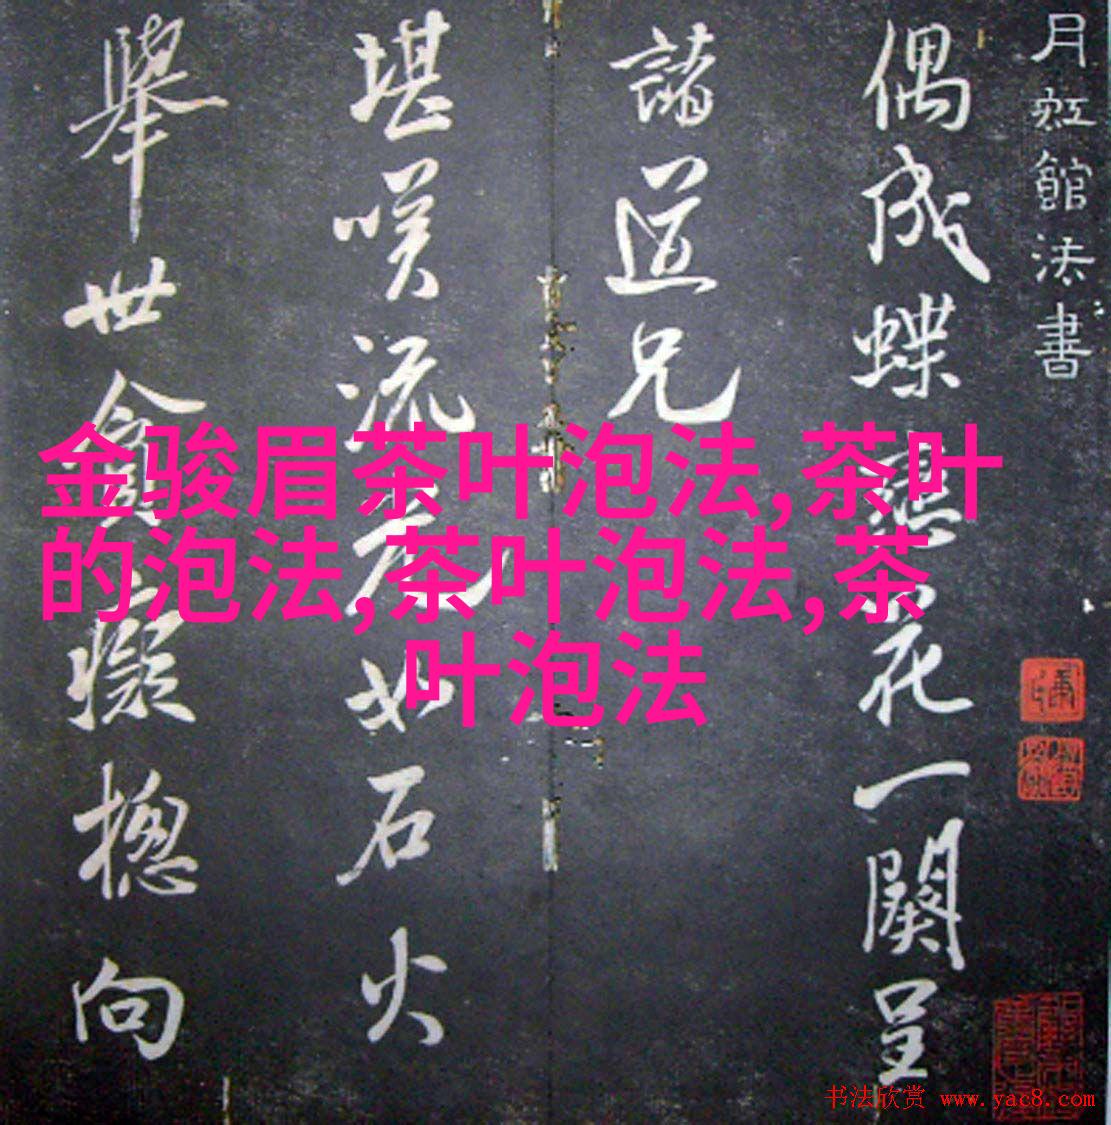 月虹館法書
偶成蝶戀花一闋呈
諸道兄
堪嘆流光如石火
舉世貪癡摠向
金骏眉茶叶泡法,茶叶
的泡法,茶叶泡法,茶
叶泡法
书法欣赏 www.yac8.com